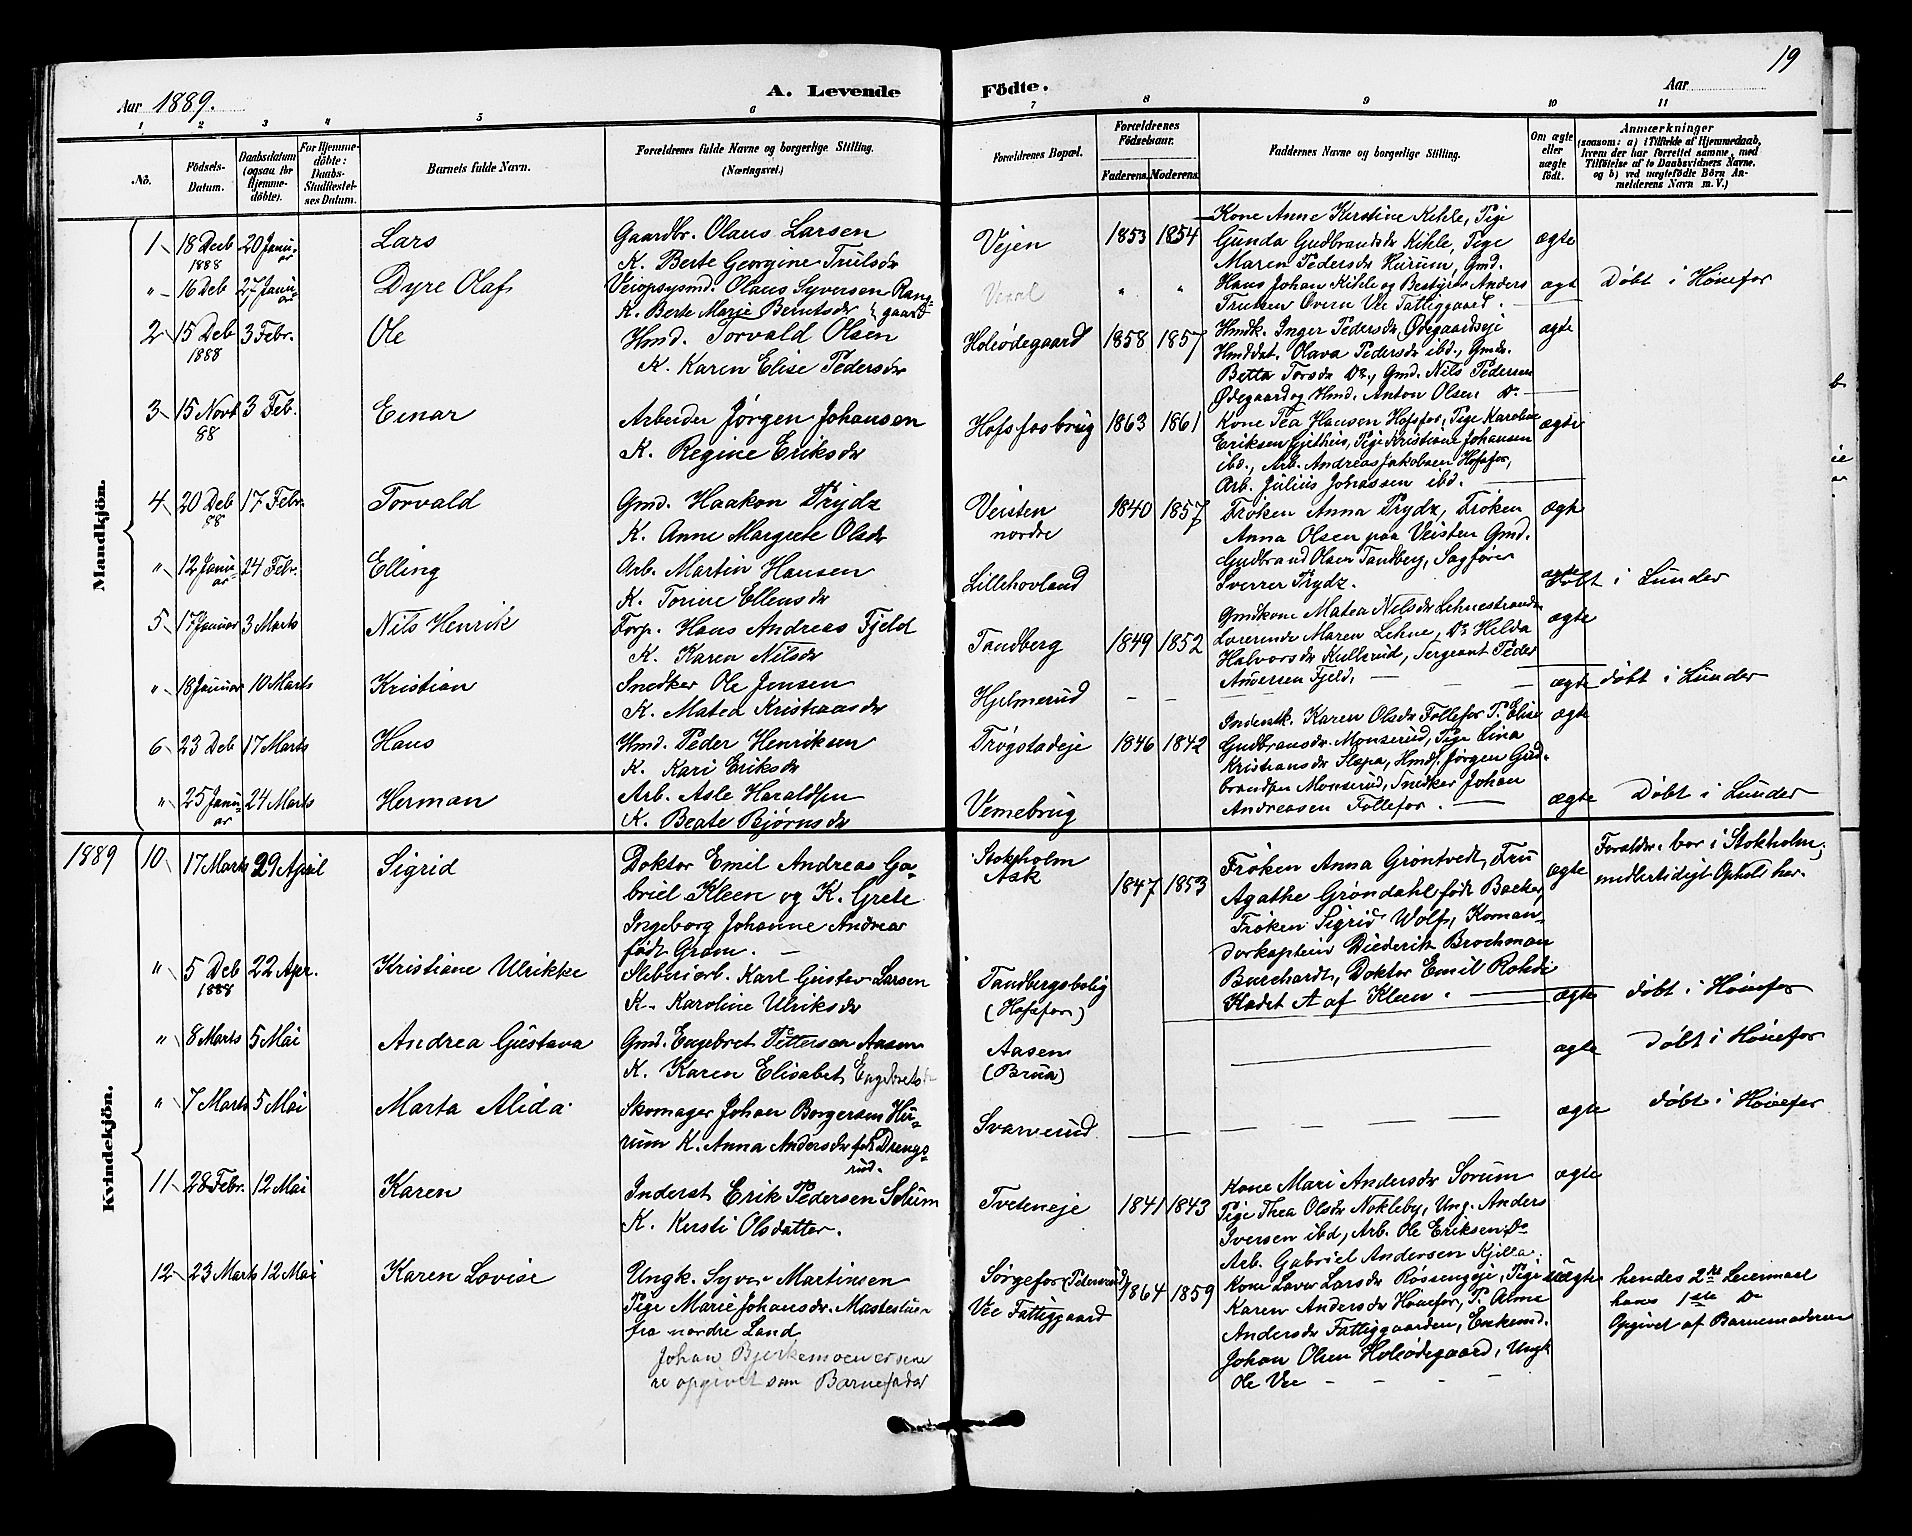 19
Aar 1889.
A. Levende Födte.
Aar
1 2 3 4 5 6 7 8 9 10 11
No.
Födsels-Datum.
Daabsdatum (ogsaa for Hjemmedöbte).
For Hjemmedöbte: Daabs-Stadfæstelses Datum.
Barnets fulde Navn.
Forældrenes fulde Navne og borgerlige Stilling. (Næringsvei.)
Forældrenes Bopæl.
Forældrenes Födselsaar.
Faderens. Moderens.
Faddernes Navne og borgerlige Stilling.
Om ægte eller uægte födt.
Anmærkninger
(saasom: a) i Tilfælde af Hjemmedaab,
hvem der har forrettet samme, med
Tilföielse af to Daabsvidners Navne,
og b) ved uægtefödte Börn An-
melderens Navn m. V.)
Mandkjön.
1 18 Decb 1888 20 Januar Lars Gaardbr. Olaus Larsen
K. Berte Georgine Trulsdr
Vejen 1853 1854
Kone Anne Kirstine Kihle, Pige
Gunda Gudbrandsdr Kihle, Pige
Maren Pedersdr Hurum, Gmd.
Hans Johan Kihle og Bestyrer Anders
Trulsen Overn Vee Fattiggaard.
ægte
" 16 Deb 27 Januar Dyre Olaf Veiopsysmd. Olaus Syversen Rang-
K. Berte Marie Berntsdr gaard
" "
ægt Døbt i Hønefos
2 15 Deb 1888 3 Febr. Ole Hmd. Torvald Olsen
K. Karen Elise Pedersdr
Holeødegaard 1858 1857
Hmdk. Inger Pedersdr, Ødegaardseje
Hmddat. Olava Pedersdr ibd., Gmdr.
Betta Torsdr Do., Gmd. Nils Pedersen
Ødegaard og Hmd. Anton Olsen Do.
ægte
3 15 Novb 88 3 Feb. Einar Arbeider Jørgen Johansen
K. Regine Eriksdr
Hofsfosbrug 1863 1861
Kone Thea Hansen Hofsfos, Pige Karoline
Eriksen Gjethus, Pige Kristiane Johansen
ibd., Arb. Andreas Jakobsen Hofsfos,
Arb. Julius Johassen ibd.
ægte
4 20 Deb 88 17 Febr. Torvald Gmd. Haakon Trydz
K. Anne Margrete Olsdr
Veisten nordre 1840 1857
Frøken Anna Trydz, Frøken
Anna Olsen paa Veisten Gmd.
Gudbrand Olsen Tandberg, Sagfører
Sverrer Trydz.
ægte
" 12 Januar 24 Febr. Elling Arb. Martin Hansen
K. Torine Ellensdr
Lillehovland
ægte Døbt i Lunder
5 17 Januar 3 Marts Nils Henrik Forp. Hans Andreas Fjeld
K. Karen Nilsdr
Tandberg 1849 1852
Gmdkone Matea Nilsdr Lehnestranden
Lærerinde Maren Lehne, Do Helda
Halvorsdr Kullerud, Sergeant Peder
Andersen Fjeld.
ægte
" 18 Januar 10 Marts Kristian Snedker Ole Jensen
K. Matea Kristiansdr
Hjelmerud — —
ægte døbt i Lunder
6 23 Deb 17 Marts Hans Hmd. Peder Henriksen
K. Kari Eriksdr
Trøgstadeje 1846 1842
Inderstk. Karen Olsdr Follefos P. Elise
Gudbransdr. Monserud, Pige Lina
Kristiansdr Flaspa, Hmds. Jørgen Gud-
brandsen Monserud, Snedker Johan
Andreasen Follefos.
ægte
" 25 Januar 24 Marts Herman Arb. Asle Haraldsen
K. Beate Bjørnsdr
Vemebrug
ægte Døbt i Lunder
1889
Kvindekjön.
10 17 Marts 29 April Sigrid Doktor Emil Andreas Ga-
briel Kleen og K. Grete
Ingeborg Johanne Andrea
født Gram.
Stokholm
Ask
1847 1853
Frøken Anna Grøntvedt, Fru
Agathe Grøndahl født Backer,
Frøken Sigrid Wolf, Koman-
dørkaptein Diederik Brochman
Burchardt, Doktor Emil Rohde
Kadet A af Kleen.
ægte
Forældr. bor i Stokholm,
midlertidigt Ophold her.
" 5 Deb 1888 22 Apr. Kristiane Ulrikke Sliberiarb. Karl Gustav Larsen
K. Karoline Ulriksdr
Tandbergsbolig
(Hofsfos)
ægte døbt i Hønefos
" 8 Marts 5 Mai Andrea Gustava Gmd. Engebret Pettersen Aasen
K. Karen Elisabet Engebretsdr
Aasen
(Brua)
ægte Døbt i Hønefos
" 7 Marts 5 Mai Marta Alida Skomager Johan Borgersen Hu-
rum K. Anna Andersdr født Drengs-
rud.
Svarverud
ægte døbt i Hønefos
11 28 Febr. 12 Mai Karen Inderst Erik Pedersen Solum
K. Kersti Olsdatter.
Tveteneje 1841 1843
Kone Mari Andersdr Sorum
Pige Thea Olsdr Nokleby, Ung. Anders
Iversen ibd, Arb. Ole Eriksen Do
Arb. Gabriel Andersen Kjilla.
ægte
12 23 Marts 12 Mai Karen Lovise Ungk. Syver Martinsen
Pige Marie Johansdr. Mastestuen
fra nordre Land
Johan Bjerkemoen er sene
re opgivet som Barnefader
Sørgefos (Pederrud)
Vee Fattiggaard
1864 1859
Kone Laver Larsdr Røssengeje, Pige
Karen Andersdr Hønefos, P. Alme
Andersdr Fattiggaarden, Enkemd.
Johan Olsen Holeødegaard, Ungk
Ole Vee
uægte
hendes 2det Leiermaal
hans 1ste Do
Opgivet af Barnemoderen